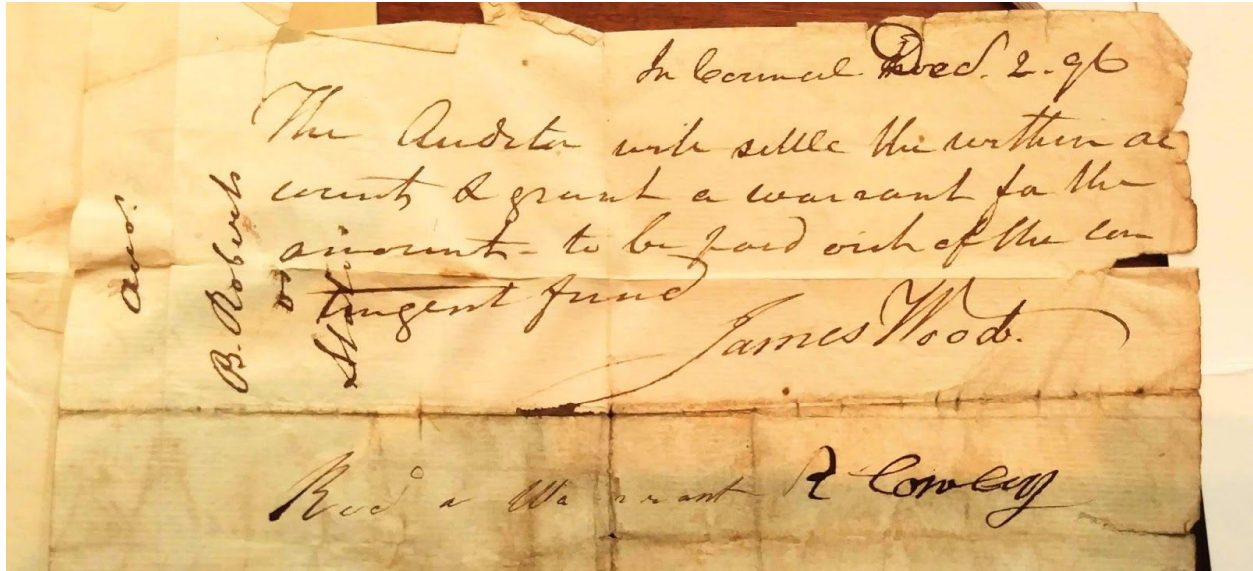 In Council Decd. 2. 96
The Auditor will settle the within ac
count & grant a warrant for the
amount - to be paid out of the con
tingent fund
James Wood.
Recd a Warrant R Cowley
B. Roberts